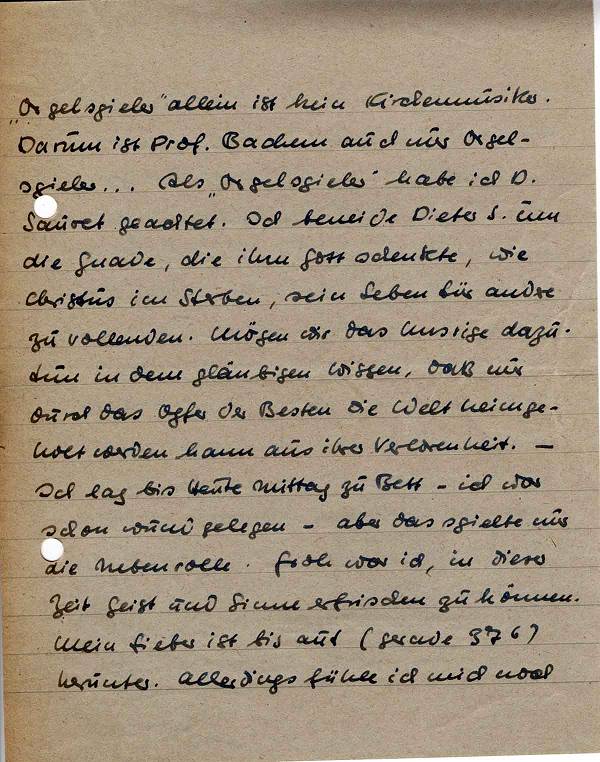 „Orgelspieler" allein ist kein Kirchenmusiker.
Darum ist Prof. Bachem auch nur Orgel-
spieler... Als „Orgelspieler" habe ich D.
Sauret geachtet. Ich beneide Dieter S. um
die Gnade, die ihm Gott schenkte, wie
Christus im Sterben, sein Leben für andre
zu vollenden. Mögen wir das Unsrige dazu-
tun in dem gläubigen Wissen, daß nur
durch das Opfer der Besten die Welt heimge-
holt werden kann aus ihrer Verlorenheit. —
Ich lag bis heute Mittag zu Bett – ich war
schon wund gelegen – aber das spielte nur
die Nebenrolle. Froh war ich, in dieser
Zeit Geist und Sinne erfrischen zu können.
Mein Fieber ist bis auf (gerade 37⁶)
herunter. Allerdings fühle ich mich noch